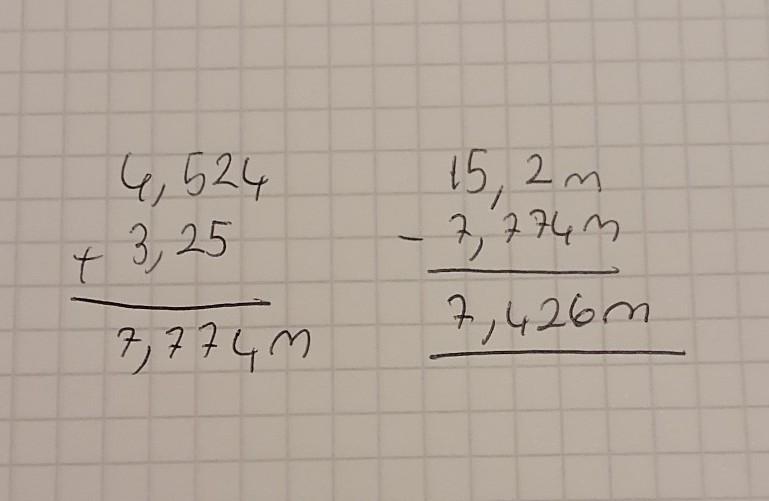 4,524
+ 3,25
7,774m
15,2m
- 7,774m
7,426m